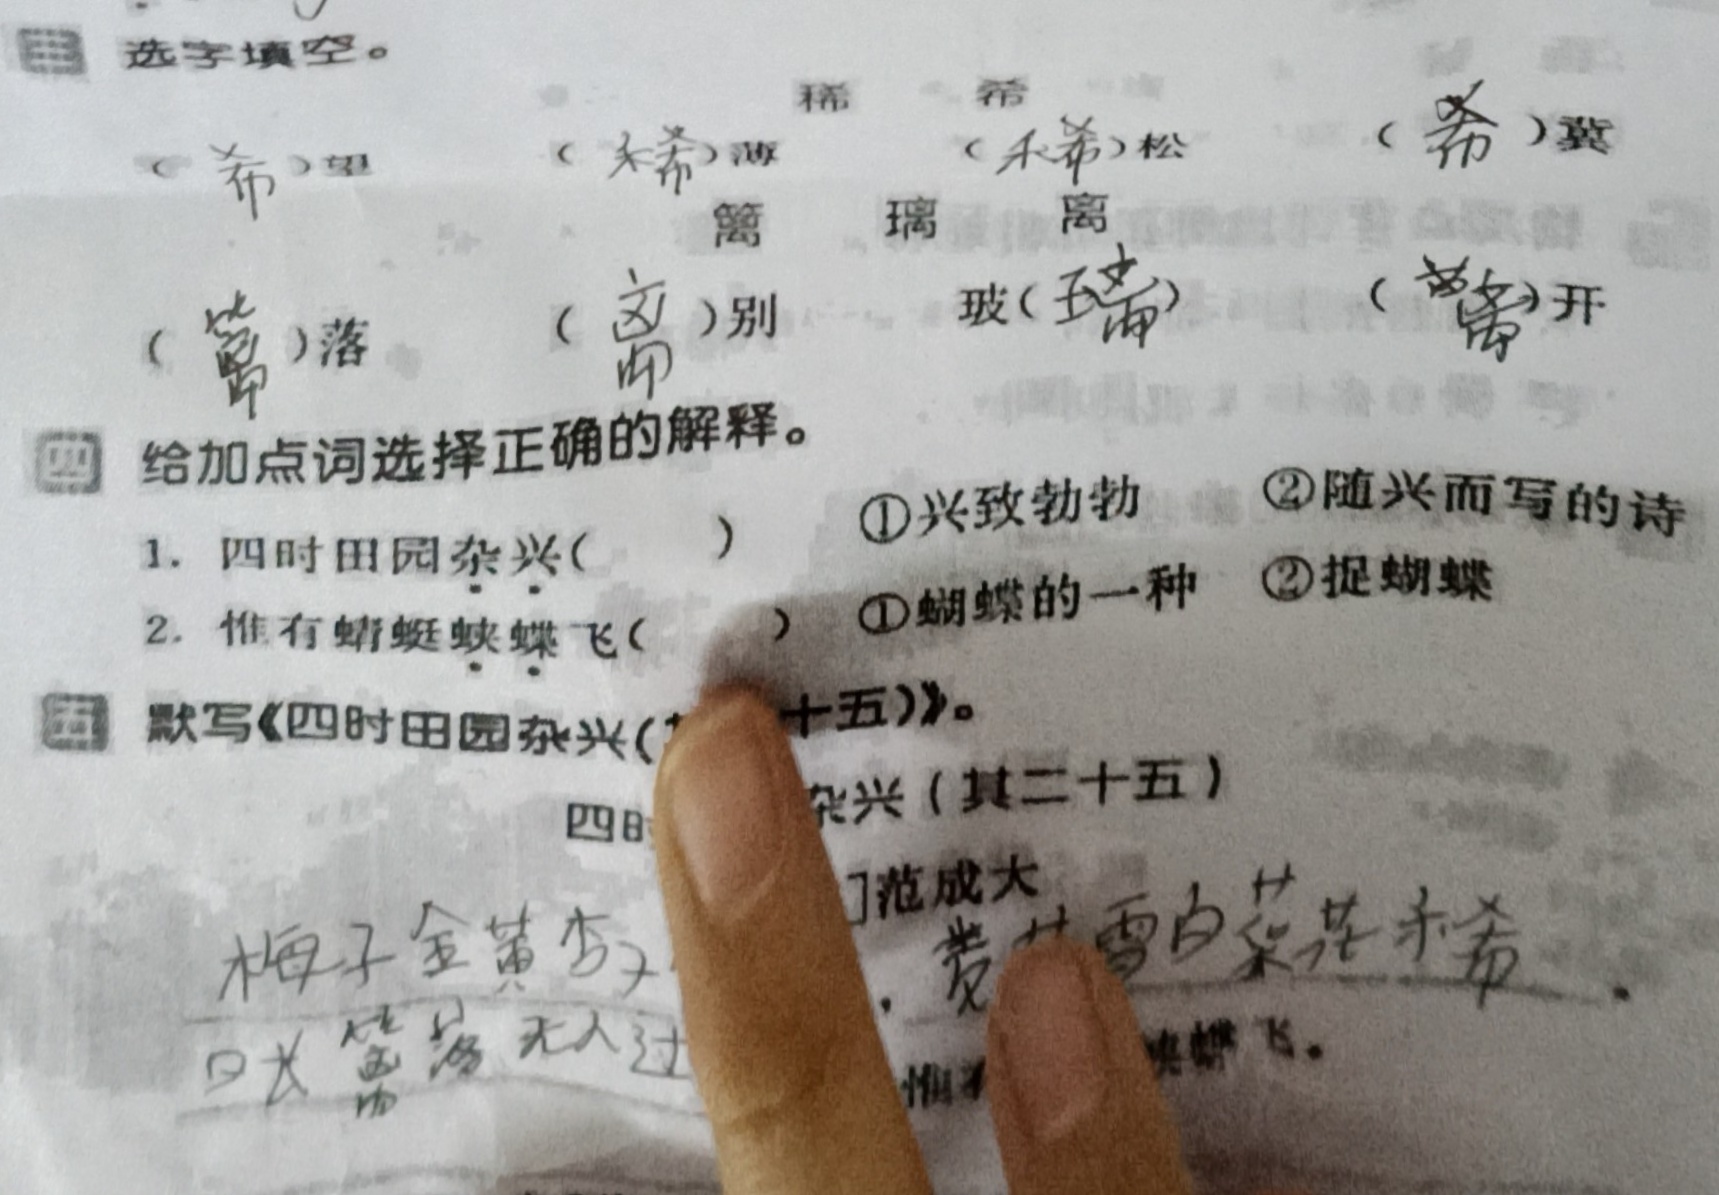 三 选字填空。
稀 希
（希）望 （稀）薄 （稀）松 （希）冀
篱 璃 离
（篱）落 （离）别 玻（璃） （离）开
四 给加点词选择正确的解释。
1. 四时田园杂兴（ ） ①兴致勃勃 ②随兴而写的诗
2. 惟有蜻蜓蛱蝶飞（ ） ①蝴蝶的一种 ②捉蝴蝶
五 默写《四时田园杂兴（ 十五）》。
四时 杂兴（其二十五）
]范成大
梅子金黄杏子 ，麦花雪白菜花稀。
日长篱落无人过 惟有 蛱蝶飞。